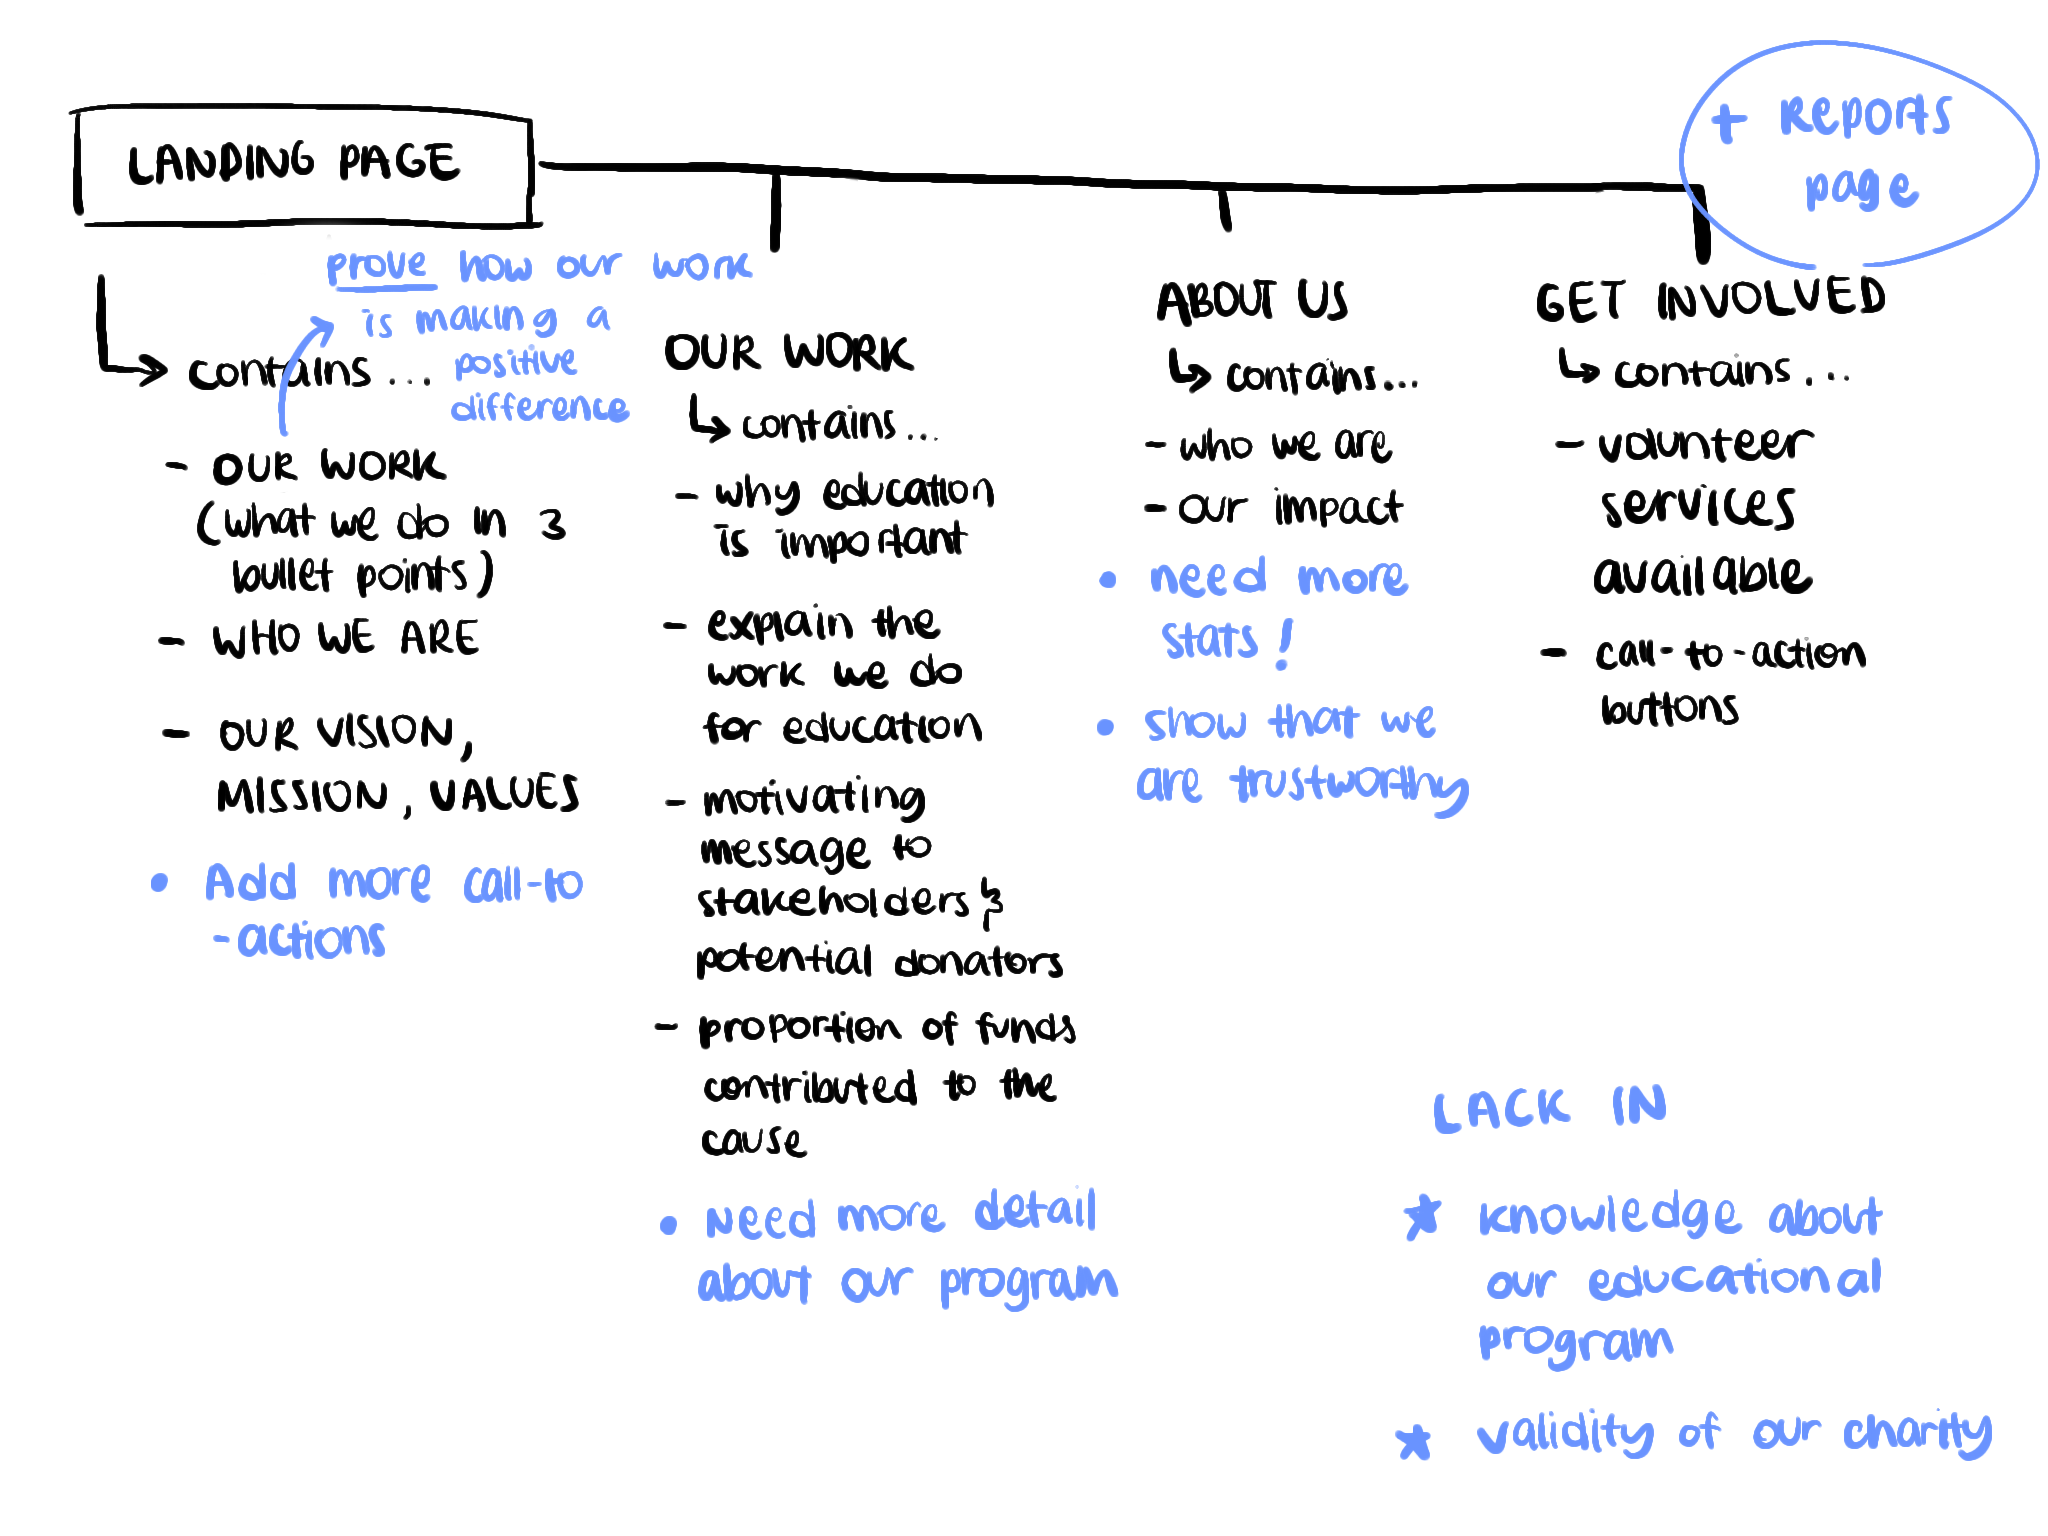 LANDING PAGE
+ Reports
page
prove how our work
is making a
positive
difference
contains ...
- OUR WORK
(what we do in 3
bullet points)
- WHO WE ARE
- OUR VISION,
MISSION, VALUES
• Add more call-to
-actions
OUR WORK
contains ...
- why education
is important
- explain the
work we do
for education
- motivating
message to
stakeholders &
potential donators
- proportion of funds
contributed to the
cause
• Need more detail
about our program
ABOUT US
contains...
- who we are
- our impact
• need more
stats!
• show that we
are trustworthy
GET INVOLVED
contains...
- volunteer
services
available
- call-to-action
buttons
LACK IN
★ knowledge about
our educational
program
★ validity of our charity